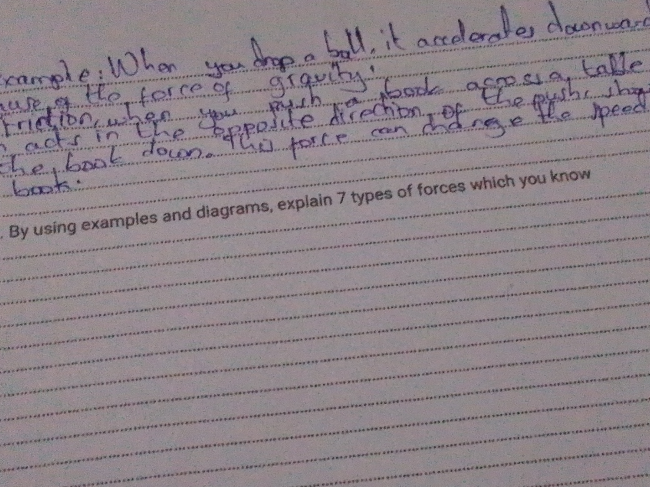 xample: When you drop a ball, it accelerates downward
ause of the force of gravity.
Friction, when you push a book across a table
n acts in the opposite direction, of the push,
the, book down. This force can change the speed
book.
. By using examples and diagrams, explain 7 types of forces which you know